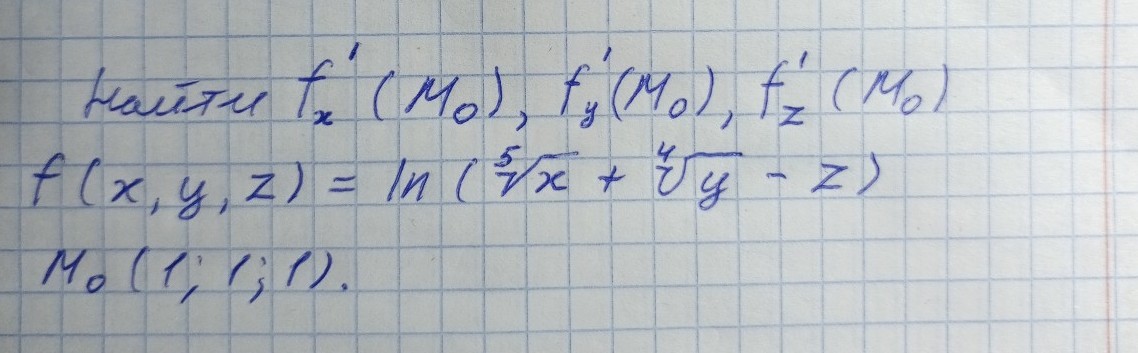 Найти f'ₓ (M₀), f'y (M₀), f'z (M₀)
f(x, y, z) = ln (⁵√x + ⁴√y - z)
M₀ (1; 1; 1).